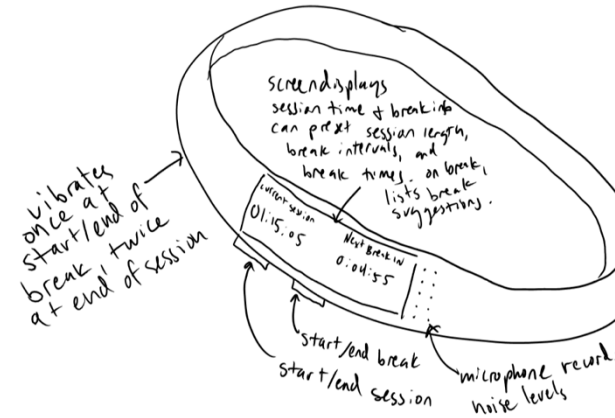 screen displays
session time & break info
can preset session length,
break intervals, and
break times. on break,
lists break
suggestions.
vibrates
once at
start/end of
break, twice
at end of session
current session
01:15:05
Next Break in
0:04:55
start/end break
start/end session
microphone record
noise levels